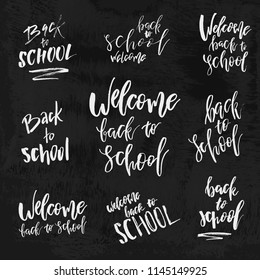 Back
to
SCHOOL
back
to
school
welcome
Welcome
back to
school
Back
to
SCHOOL
Welcome
back to
school
back
to
school
Welcome
back to school
welcome
back to
SCHOOL
back
to
school
shutterstock.com · 1145149925